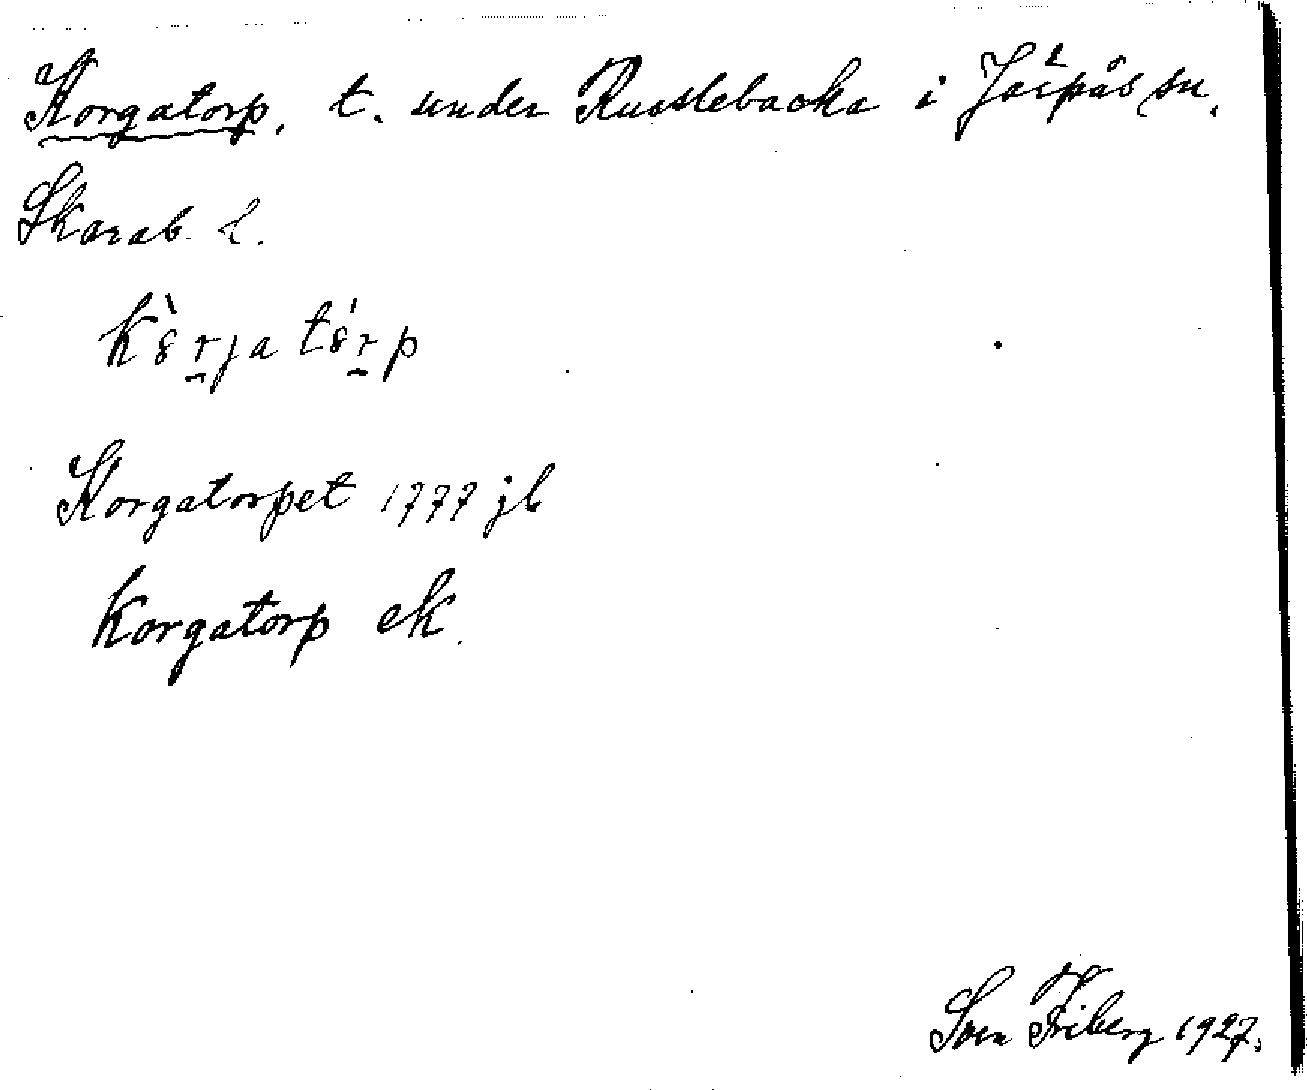 Korgatorp, t. under Russlebacka i Järpås sn.
Skarab. l.
kòrjatórp
Korgatorpet 1777 jb
Korgatorp ek.
Sven Friberg 1927.